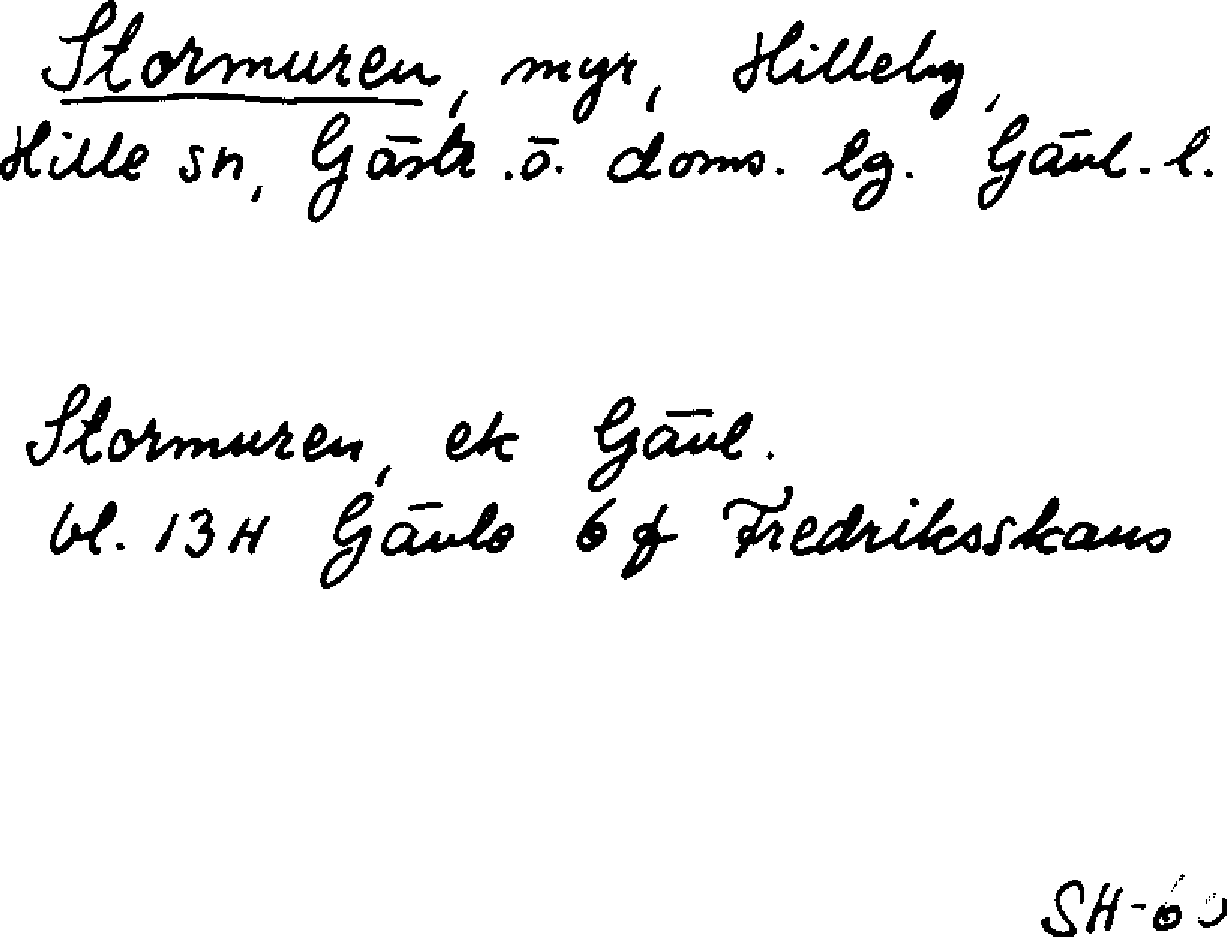 Stormuren, myr, Hilleby,
Hille sn, Gästr. ö. doms. lg. Gävl. l.
Stormuren, ek Gävl.
bl. 13H Gävle 6 f Fredriksskans